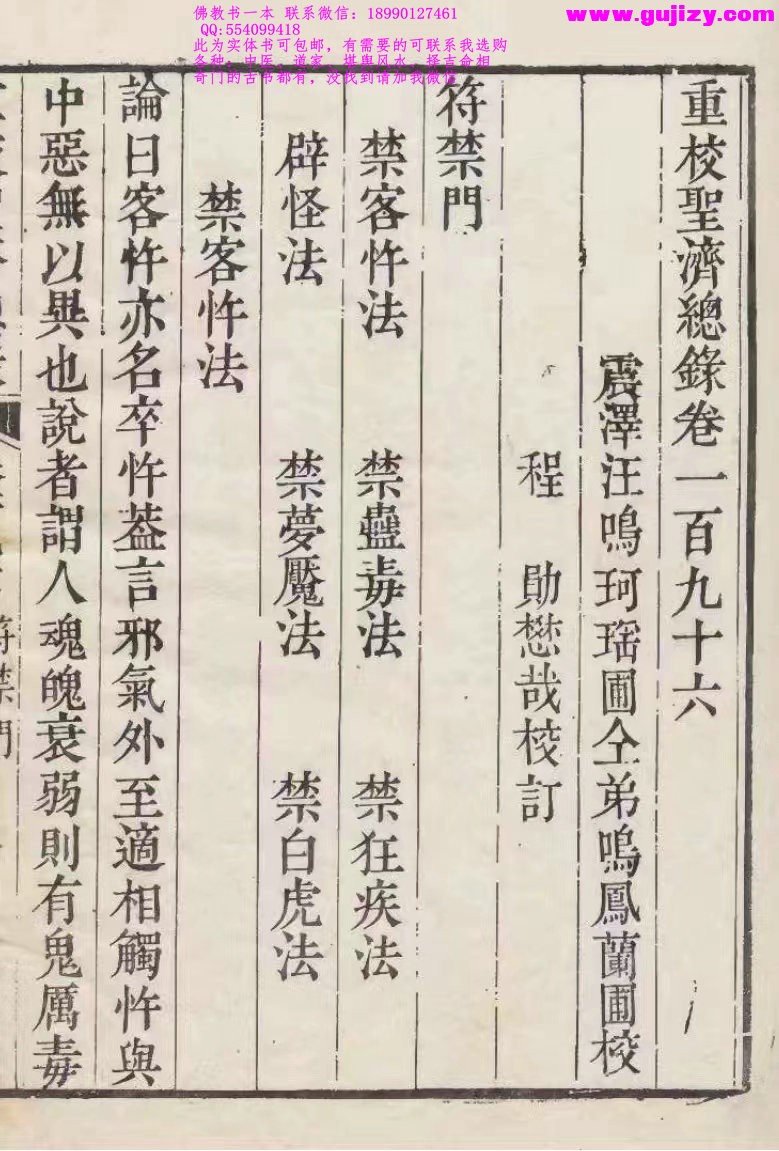 佛教书一本 联系微信：18990127461
QQ:554099418
此为实体书可包邮，有需要的可联系我选购
各种，中医，道家，堪舆风水，择吉命相
奇门的古书都有，没找到请加我微信
www.gujizy.com
重校聖濟總錄卷一百九十六
震澤汪鳴珂瑶圃仝弟鳴鳳蘭圃校
程 勛懋哉校訂
符禁門
禁客忤法 禁蠱毒法 禁狂疾法
辟怪法 禁夢魘法 禁白虎法
禁客忤法
論曰客忤亦名卒忤葢言邪氣外至適相觸忤與
中惡無以異也說者謂人魂魄衰弱則有鬼厲毒
符禁門